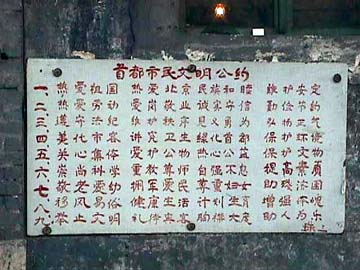 首都市民文明公约
一、热爱祖国 热爱北京 民族和睦 维护安定
二、热爱劳动 爱岗敬业 诚实守信 勤俭节约
三、遵守法纪 维护秩序 见义勇为 弘扬正气
四、美化市容 讲究卫生 绿化首都 保护环境
五、关心集体 爱护公物 热心公益 保护文物
六、崇尚科学 重教尊师 自强不息 提高素质
七、敬老爱幼 拥军爱民 尊重妇女 助残济困
八、移风易俗 健康生活 计划生育 增强体魄
九、举止文明 礼待宾客 胸襟大度 助人为乐